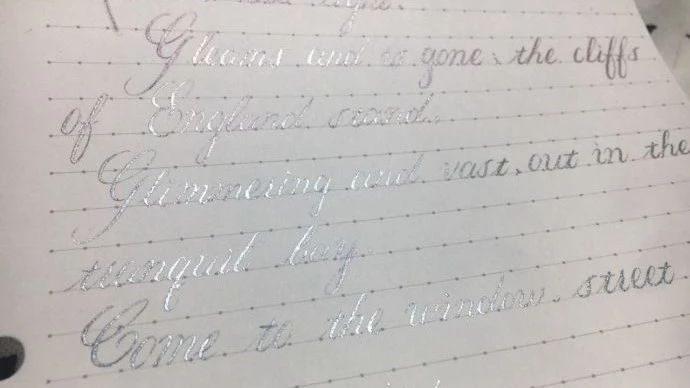 Gleams and is gone, the cliffs
of England stand.
Glimmering and vast, out in the
tranquil bay.
Come to the window. street